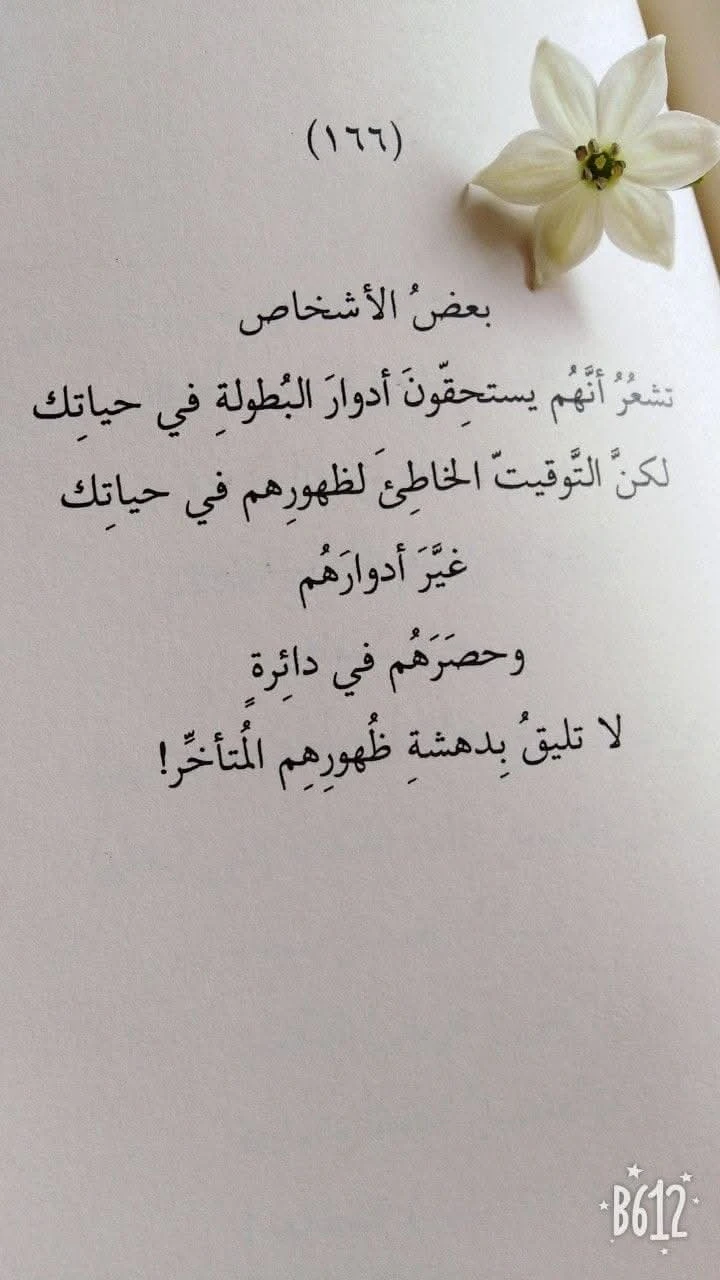 (١٦٦)
بعضُ الأشخاص
تشعُرُ أنَّهُم يستحِقّونَ أدوارَ البُطولةِ في حياتِك
لكنَّ التَّوقيتّ الخاطِئَ لظهورِهم في حياتِك
غيَّرَ أدوارَهُم
وحصَرَهُم في دائِرةٍ
لا تليقُ بِدهشةِ ظُهورِهِم المُتأخِّر!
B612